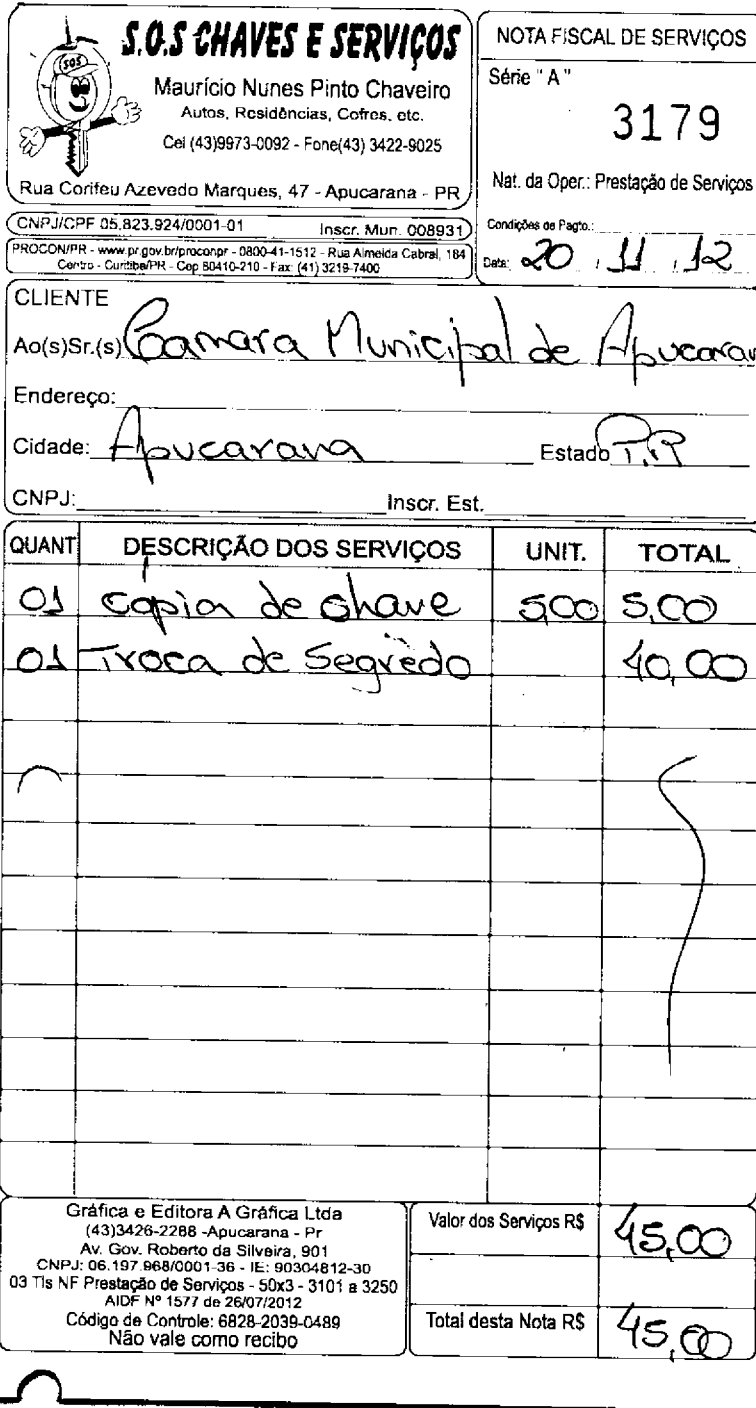 SOS
S.O.S CHAVES E SERVIÇOS
Maurício Nunes Pinto Chaveiro
Autos, Residências, Cofres, etc.
Cel (43)9973-0092 - Fone(43) 3422-9025
Rua Corifeu Azevedo Marques, 47 - Apucarana - PR
CNPJ/CPF 05.823.924/0001-01 Inscr. Mun. 008931
PROCON/PR - www.pr.gov.br/proconpr - 0800-41-1512 - Rua Almeida Cabral, 184
Centro - Curitiba/PR - Cep 80410-210 - Fax: (41) 3219-7400
NOTA FISCAL DE SERVIÇOS
Série "A"
3179
Nat. da Oper.: Prestação de Serviços
Condições de Pagto.:
Data: 20 . 11 . 12
CLIENTE
Ao(s)Sr.(s) Camara Municipal de Apucaran
Endereço:
Cidade: Apucarana Estado P.R
CNPJ: Inscr. Est.
QUANT DESCRIÇÃO DOS SERVIÇOS UNIT. TOTAL
01 copia de chave 5,00 5,00
01 Troca de Segredo 40,00
Gráfica e Editora A Gráfica Ltda
(43)3426-2288 -Apucarana - Pr
Av. Gov. Roberto da Silveira, 901
CNPJ: 06.197.968/0001-36 - IE: 90304812-30
03 Tls NF Prestação de Serviços - 50x3 - 3101 a 3250
AIDF Nº 1577 de 26/07/2012
Código de Controle: 6828-2039-0489
Não vale como recibo
Valor dos Serviços R$ 45,00
Total desta Nota R$ 45,00